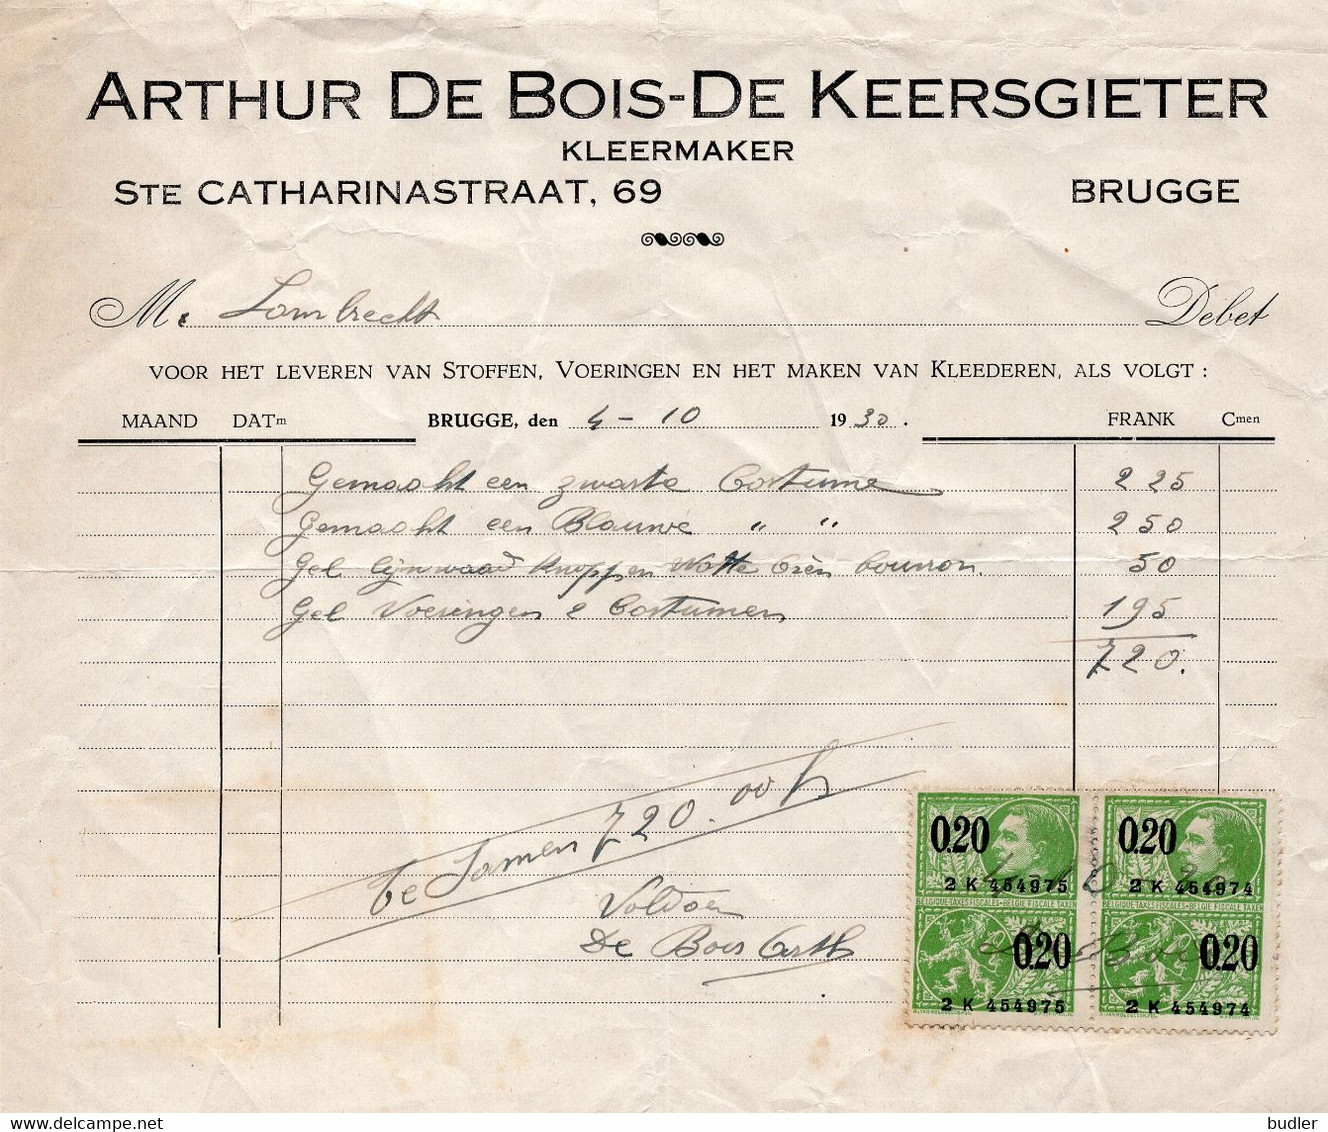 ARTHUR DE BOIS-DE KEERSGIETER
KLEERMAKER
STE CATHARINASTRAAT, 69 BRUGGE
Mr Lambrecht Debet
VOOR HET LEVEREN VAN STOFFEN, VOERINGEN EN HET MAKEN VAN KLEEDEREN, ALS VOLGT :
MAAND DATm BRUGGE, den 4-10 1930. FRANK Cmen
Gemaakt een zwarte Costume 225
Gemaakt een Blauwe " " 250
Gel lijnwaad Knoppen Watte 50
Gel Voeringen 2 Costumen 195
720.
te Samen 720.00 fr
Voldoen
De Bois Arth
0.20 0.20
2 K 454975 2 K 454974
BELGIQUE-TAXES FISCALES-BELGIE FISCALE TAXEN BELGIQUE-TAXES FISCALES-BELGIE FISCALE TAXEN
0.20 0.20
2 K 454975 2 K 454974
delcampe.net
budler